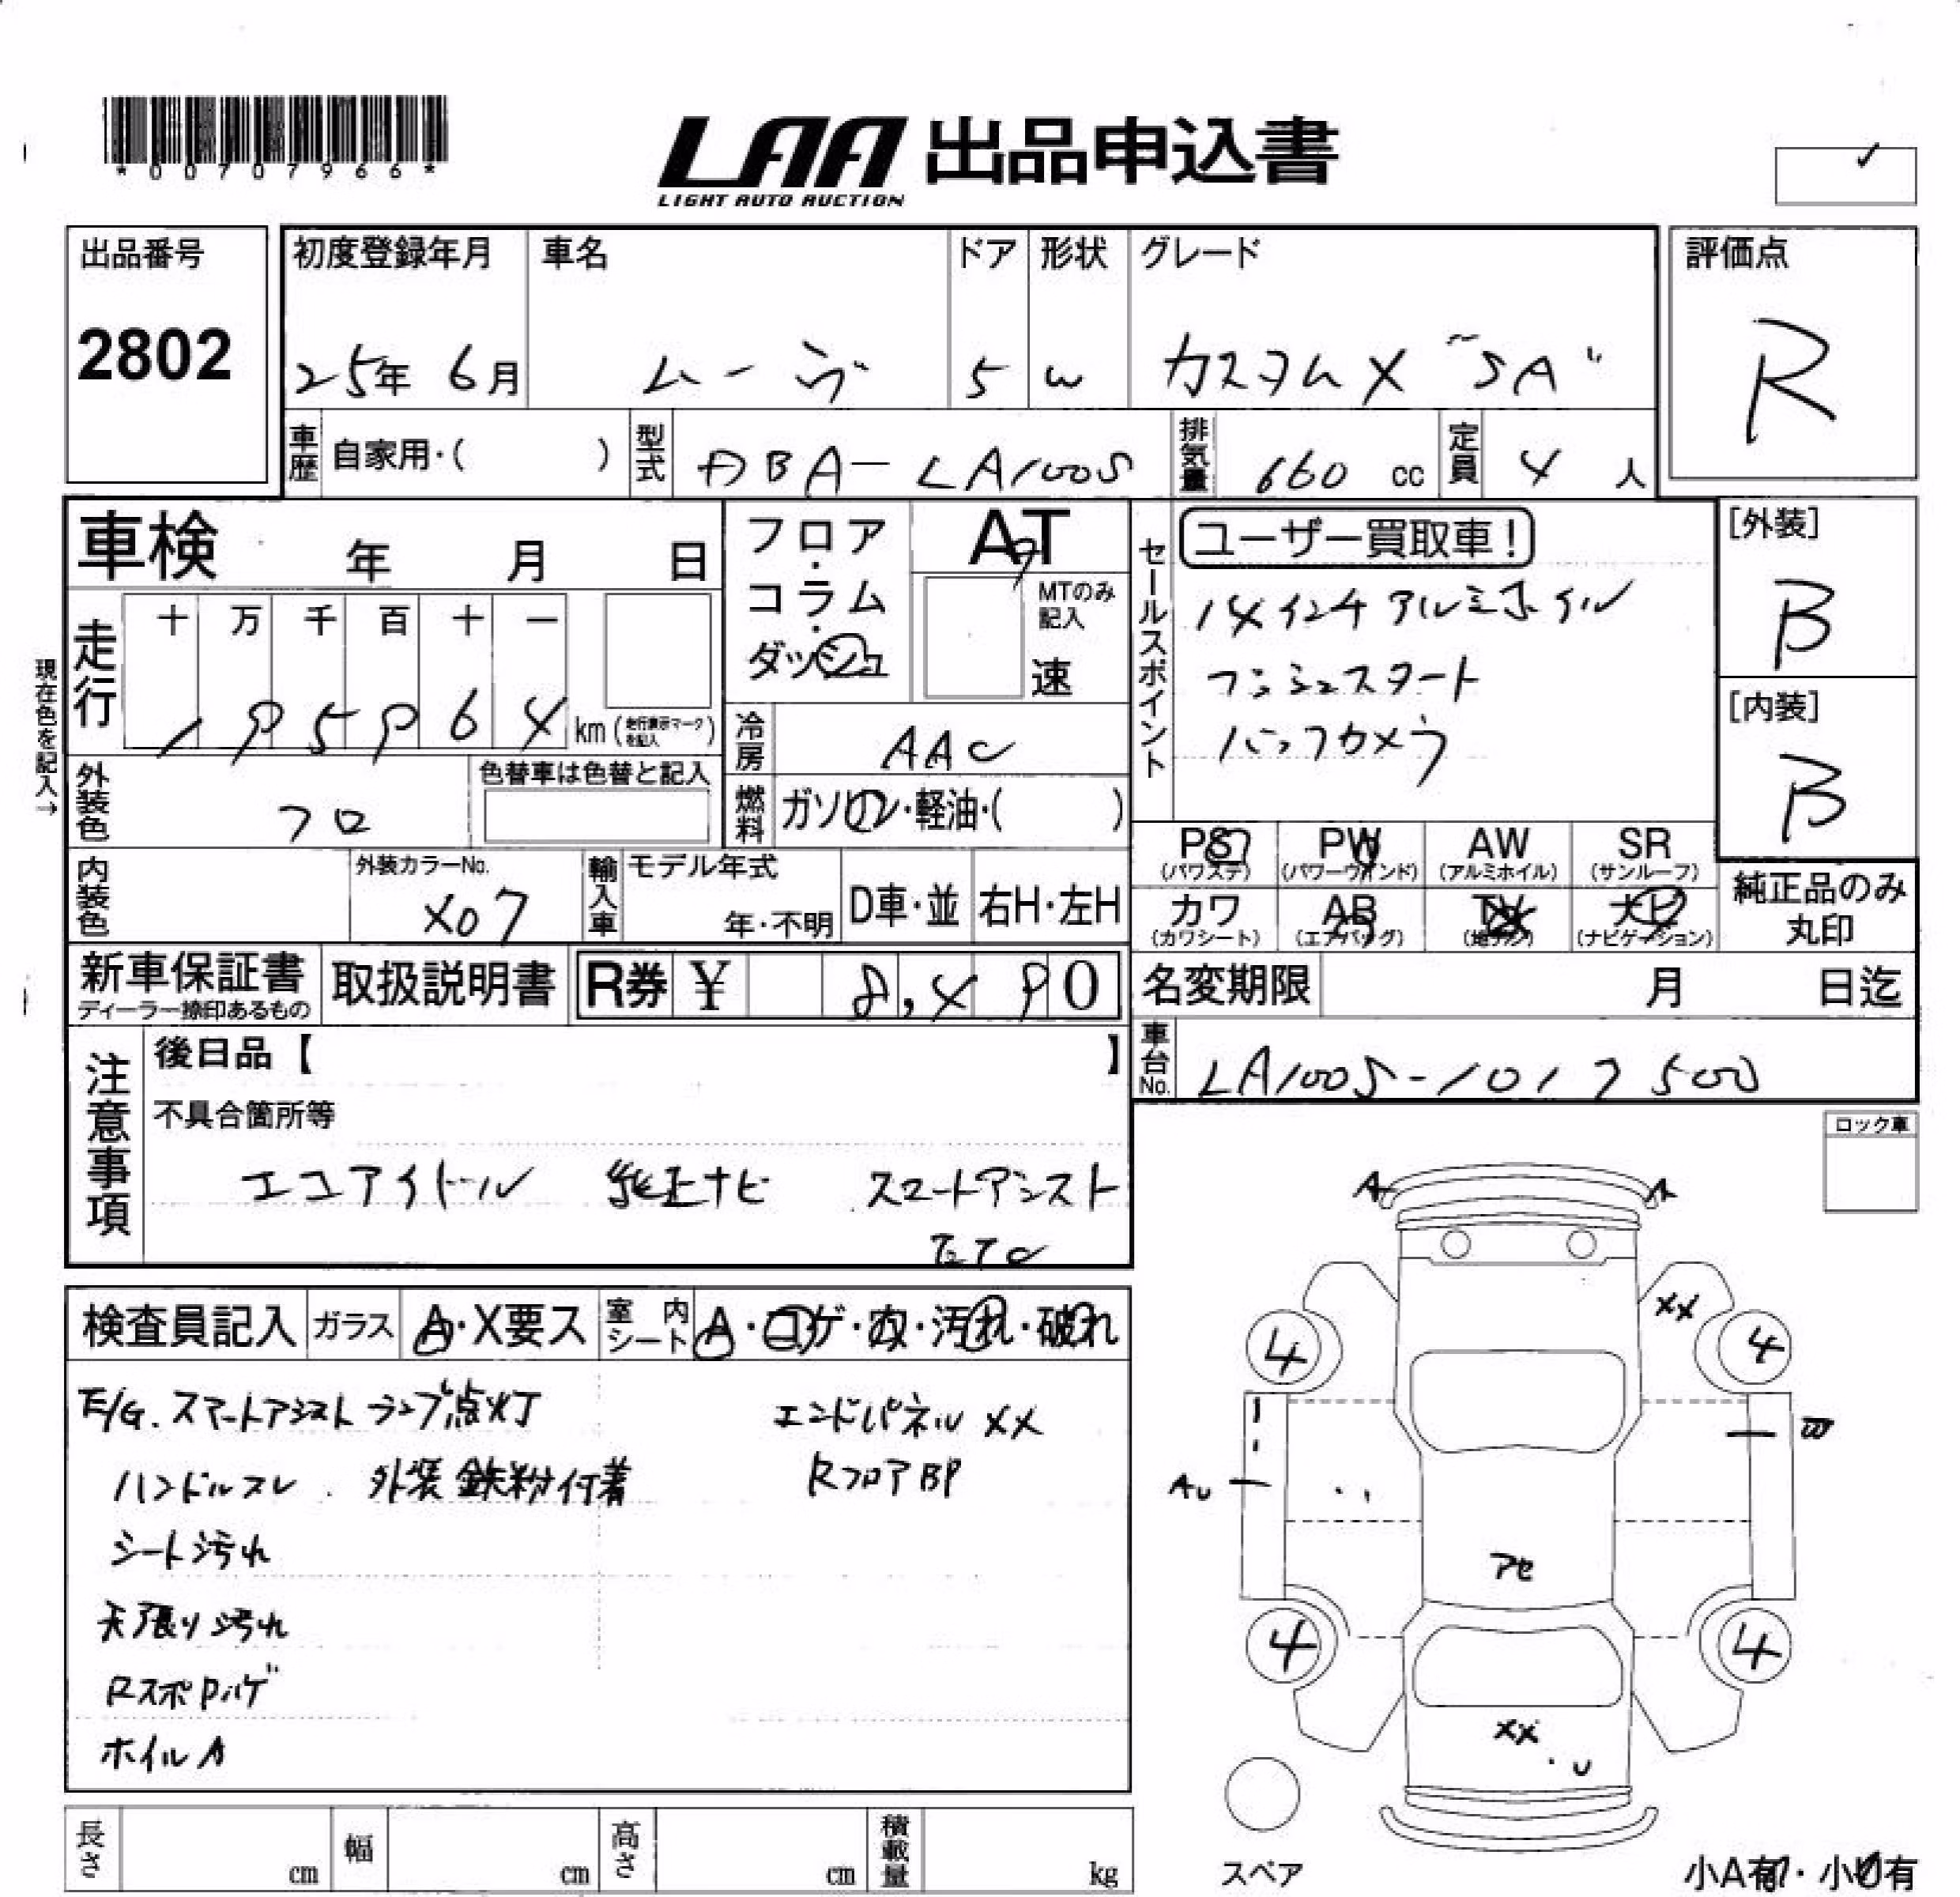 *00707966*
LAA 出品申込書
LIGHT AUTO AUCTION
✓
出品番号
2802
初度登録年月
25年 6月
車名
ムーヴ
ドア
5
形状
W
グレード
カスタムX "SA"
評価点
R
車歴
自家用・( )
型式
DBA-LA100S
排気量
660 cc
定員
4 人
車検 年 月 日
フロア・コラム・ダッシュ
AT
MTのみ記入
速
セールスポイント
ユーザー買取車!
14インチアルミホイル
プッシュスタート
バックカメラ
[外装]
B
[内装]
B
現在色を記入→
走行
十 万 千 百 十 一
195964 km (走行表示マークを記入)
冷房
AAC
外装色
クロ
色替車は色替と記入
燃料
ガソリン・軽油・( )
内装色
外装カラーNo.
X07
輸入車
モデル年式
年・不明
D車・並
右H・左H
PS PW AW SR
(パワステ) (パワーウインド) (アルミホイル) (サンルーフ)
カワ AB TV ナビ
(カワシート) (エアバッグ) (地デジ) (ナビゲーション)
純正品のみ
丸印
新車保証書
ディーラー捺印あるもの
取扱説明書
R券 ¥ 8,490
名変期限 月 日迄
車台No.
LA100S-1017500
注意事項
後日品【 】
不具合箇所等
エコアイドル 純正ナビ スマートアシスト
ETC
ロック車
検査員記入
ガラス
A・X要ス
室内シート
A・コゲ・穴・汚れ・破れ
E/G.スマートアシストランプ点灯
エンドパネルXX
ハンドルスレ.外装鉄粉付着
RフロアBP
シート汚れ
天張り汚れ
RスポPハゲ
ホイルA
A A
XX
4 4
AU
アセ
4 4
XX
・U
スペア
小A有・小U有
長さ cm
幅 cm
高さ cm
積載量 kg